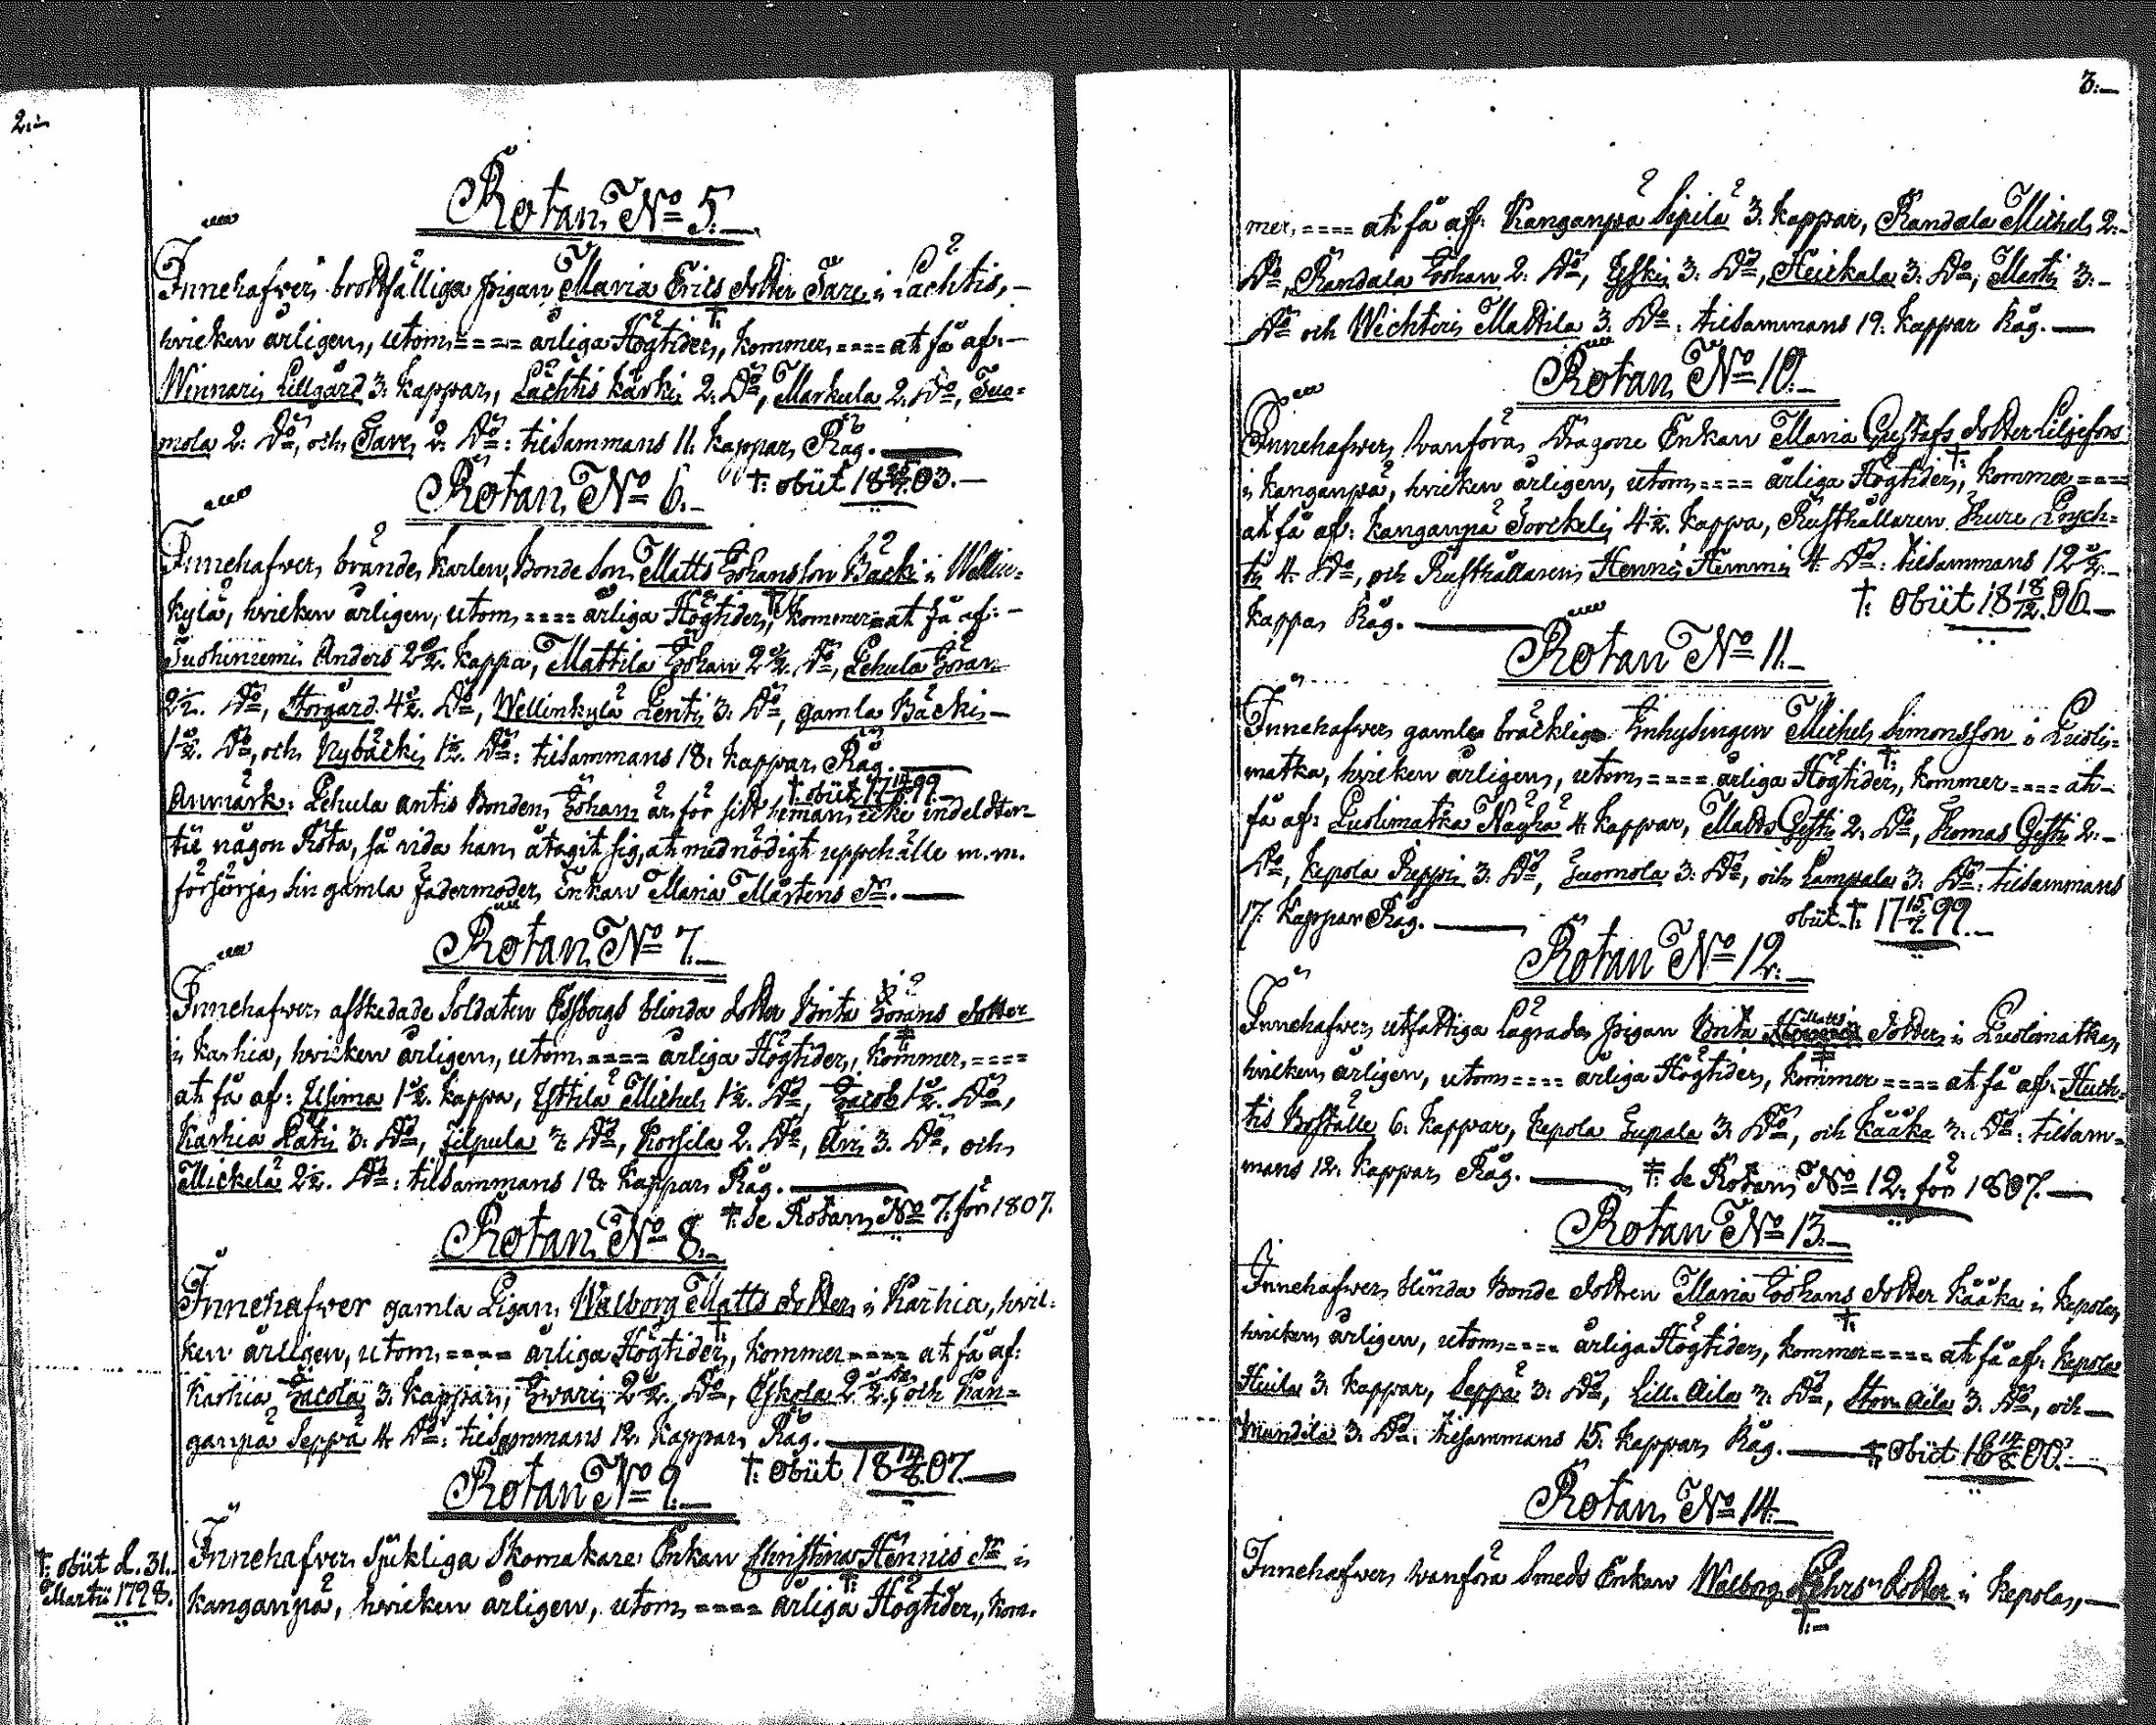 2.
Rotan N:o 5.
Innehafver brostfälliga pigan Maria Erics dotter Tare i Lachtis,
hvilken årligen, utom ==== årliga Högtider, kommer ==== at få af:
Winnaris Lillgård 3. kappar, Lachtis kärki 2. D:o, Markula 2. D:o, Tuo=
mola 2. D:o, och Tare 2. D:o: tilsammans 11. kappar Råg.
†: obiit 18 03.
Rotan N:o 6.
Innehafver bränden karlen, Bonde Son Matts Johansson Bäcki i Wellin=
kylä, hvilken årligen, utom ==== årliga Högtider, kommer = at få af:
Jushiniemi Anders 2½. kappa, Mattila Johan 2½. D:o, Lehula Göran
2½. D:o, Storgård 4½. D:o, Wellinkylä Lenti 3. D:o, gamla Bäcki
1½. D:o, och Nybäcki 1½. D:o: tilsammans 18. kappar Råg.
†: obiit 17 99.
Anmärk: Lehula antis Bonden Johan är för sitt heman icke indeldter
til någon Rota, så vida han åtagit sig, at med nödigt uppehälle m.m.
försörja sin gamla fadermoder Enkan Maria Mårtens Dr.
Rotan N:o 7.
Innehafver afskedade Soldaten Essborgs blinda dotter Brita Görans dotter
i Karhia, hvilken årligen, utom ==== årliga Högtider, kommer ====
at få af: Ilsima 1½. kappa, Yttilä Michel 1½. D:o, Jacob 1½. D:o,
Karhia Lati 3. D:o, Filpula D:o, Korsila 2. D:o, Ari 3. D:o, och
Mickelä 2½. D:o: tilsammans 18. kappar Råg.
†: Se Rotan N:o 7. för 1807.
Rotan N:o 8.
Innehafver gamla Pigan Walborg Matts dotter i Karhia, hvil=
ken årligen, utom ==== årliga Högtider, kommer ==== at få af:
Karhia Jacola 3. kappar, Iwari 2½. D:o, Eskola 2½. D:o, och Kan=
ganpä Seppä 4. D:o: tilsammans 12. kappar Råg.
†: obiit 18 14/8 07.
Rotan N:o 9.
†: obiit d. 31.
Martii 1798.
Innehafver sjukliga Skomakare Enkan Christina Hennis Dr i
Kanganpä, hvilken årligen, utom ==== årliga Högtider, kom=
3.
mer, ==== at få af: Kanganpä Sipilä 3. kappar, Randala Michel 2.
D:o, Randala Johan 2. D:o, Eski 3. D:o, Heickala 3. D:o, Martti 3.
D:o och Wichteris Mattila 3. D:o: tilsammans 19. kappar Råg.
Rotan N:o 10.
Innehafver wanföra Dragone Enkan Maria Gustafs dotter Liljefors
i Kanganpä, hvilken årligen, utom ==== årliga Högtider, kommer ====
at få af: Kanganpä Jorckeli 4½. kappa, Rusthållaren Thure Lych=
ti 4. D:o, och Rusthållaren Henric Hemmi 4. D:o: tilsammans 12½.
kappa Råg.
†: obiit 18 18/12 06.
Rotan N:o 11.
Innehafver gamle bräcklige Inhysingen Michel Simonsson i Luoli=
matka, hvilken årligen, utom ==== årliga Högtider, kommer ==== at
få af: Luolimatka Näyhä 4. kappar, Matts Gesti 2. D:o, Thomas Gesti 2.
D:o, Kepola Reppi 3. D:o, Juomola 3. D:o, och Lampala 3. D:o: tilsammans
17. kappar Råg.
obiit †: 17 99.
Rotan N:o 12.
Innehafver utfattiga Lagrade pigan Brita Matts dotter i Luolimatka,
hvilken årligen, utom ==== årliga Högtider, kommer ==== at få af: Huch=
tis Boställe 6. kappar, Kepola Jupala 3. D:o, och Kääkä 3. D:o: tilsam=
mans 12. kappar Råg.
‡: Se Rotan N:o 12. för 1807.
Rotan N:o 13.
Innehafver blinda Bonde dottren Maria Johans dotter Kääkä i Kepola,
hvilken årligen, utom ==== årliga Högtider, kommer ==== at få af: Kepola
Heicla 3. kappar, Seppä 3. D:o, Lill Aila 3. D:o, Stor Aila 3. D:o, och
Mundila 3. D:o: tilsammans 15. kappar Råg.
†: obiit 18 00.
Rotan N:o 14.
Innehafver wanföra Smeds Enkan Walborg dotter i Kepola,
†: